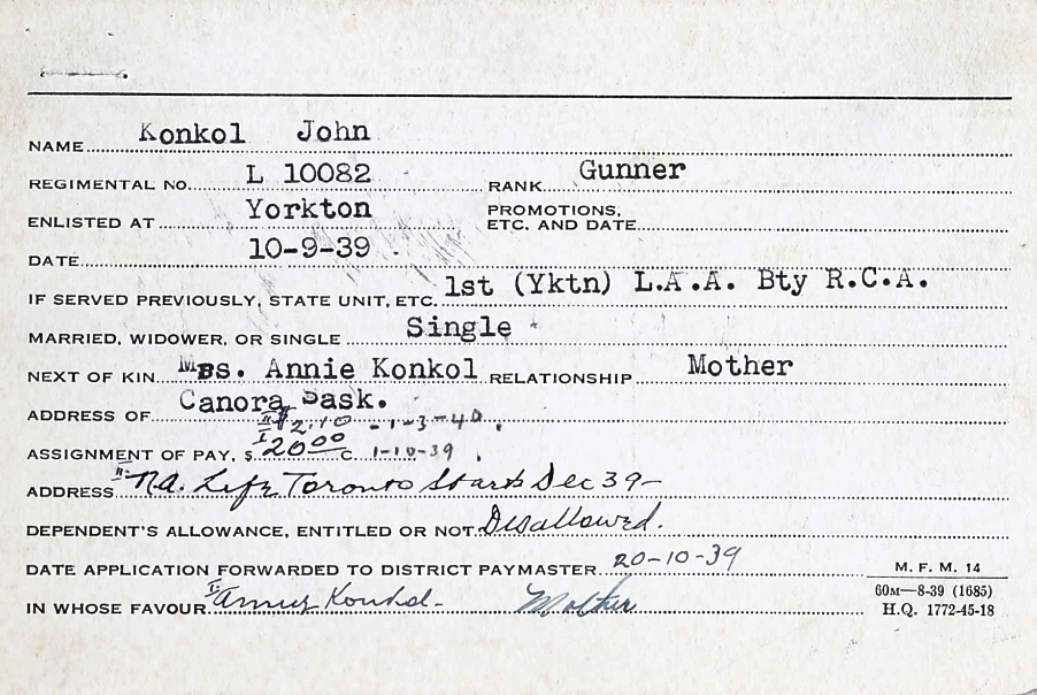 NAME Konkol John
REGIMENTAL NO. L 10082 RANK Gunner
ENLISTED AT Yorkton PROMOTIONS, ETC. AND DATE
DATE 10-9-39
IF SERVED PREVIOUSLY, STATE UNIT, ETC. 1st (Yktn) L.A.A. Bty R.C.A.
MARRIED, WIDOWER, OR SINGLE Single
NEXT OF KIN Mrs. Annie Konkol RELATIONSHIP Mother
ADDRESS OF Canora Sask.
II $2.10 - 1-3-40.
ASSIGNMENT OF PAY, $ I 20 00 C. 1-10-39
ADDRESS II N.A. Life Toronto Starts Dec 39-
DEPENDENT'S ALLOWANCE, ENTITLED OR NOT Disallowed.
DATE APPLICATION FORWARDED TO DISTRICT PAYMASTER 20-10-39
IN WHOSE FAVOUR I Annie Konkol- Mother
M. F. M. 14
60M—8-39 (1685)
H.Q. 1772-45-18